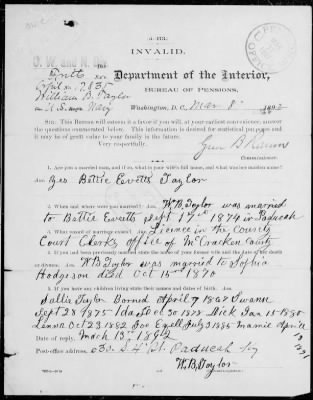 (3-173.)
INVALID.
O. W. and N. Div.
No.
William B. Taylor
U.S. Navy
Department of the Interior,
BUREAU OF PENSIONS,
Washington, D. C., Mar 8, 1892
SIR: This Bureau will esteem it a favor if you will, at your earliest convenience, answer
the questions enumerated below. This information is desired for statistical purposes and
it may be of great value to your family in the future.
Very respectfully,
Green B. Raum
Commissioner.
1. Are you a married man, and if so, what is your wife's full name, and what was her maiden name?
Ans. Yes Bettie Evetts Taylor
2. When and where were you married? Ans. W.B. Taylor was married
to Bettie Evetts Sept 17th 1874 in Paducah
3. What record of marriage exists? Ans. Licence in the County
Court Clerks office of McCracken County
4. Had you been previously married
W.B Taylor was married to Sophia
Hodgeson died Oct 15th 1870
5. If you have any children living state their names and dates of birth.
Sallie Taylor Borned April 7 1867 Susan
Sept 28 1875 Ida Oct 30 1877 Dick Jan 15 1880
Lenora Oct 23 1882 Joe Ezell July 3 1885 Mamie April
Date of reply, March 13th 1892
Post-office address, 630 S 4th St. Paducah Ky
W.B. Taylor